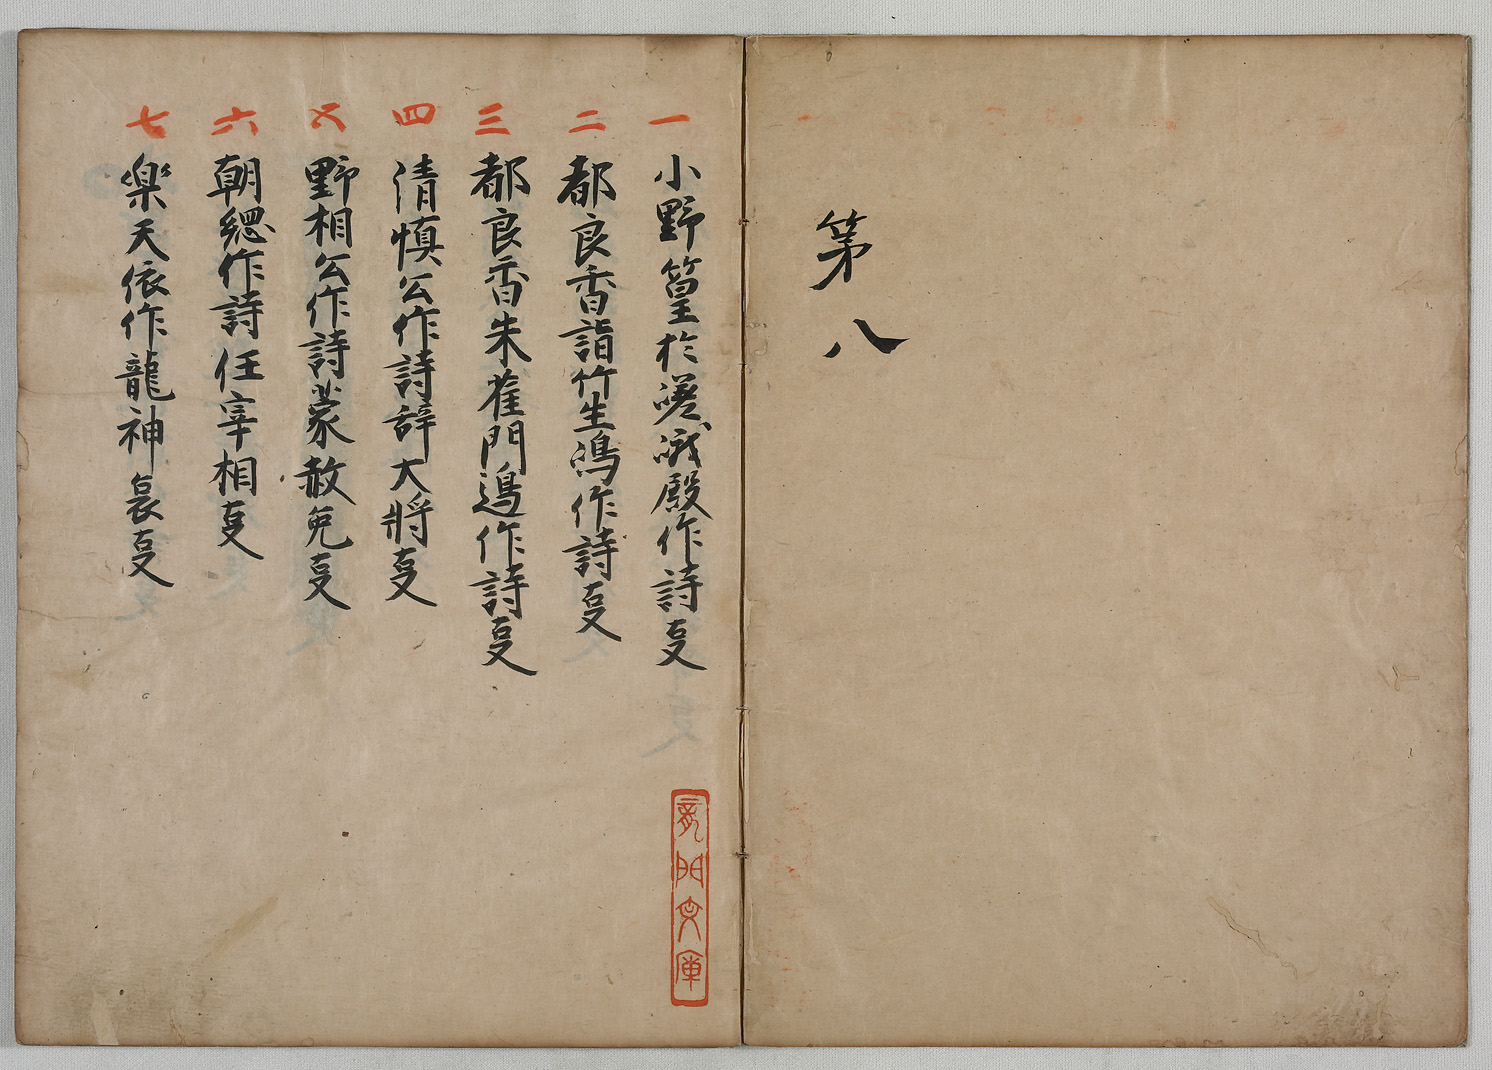 第八
一 小野篁於嵯峨殿作詩㕝
二 都良香詣竹生嶋作詩㕝
三 都良香朱雀門邊作詩㕝
四 清慎公作詩辞大将㕝
五 野相公作詩蒙赦免㕝
六 朝綱作詩任宰相㕝
七 楽天依作龍神哀㕝